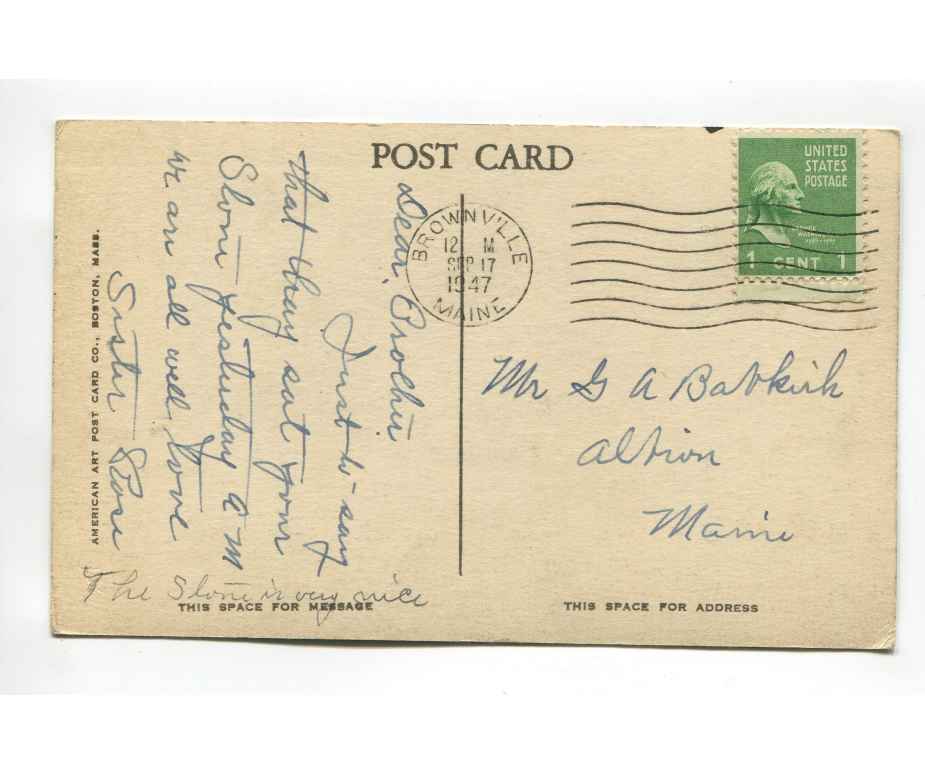 POST CARD
UNITED
STATES
POSTAGE
1 CENT 1
BROWNVILLE
12 M
SEP 17
1947
MAINE
Dear Brother
Just to say
that they sat your
Stone yesterday A M
We are all well Love
Sister Rose
The Stone is very nice
Mr G A Babkirk
Albion
Maine
THIS SPACE FOR MESSAGE
THIS SPACE FOR ADDRESS
AMERICAN ART POST CARD CO., BOSTON, MASS.